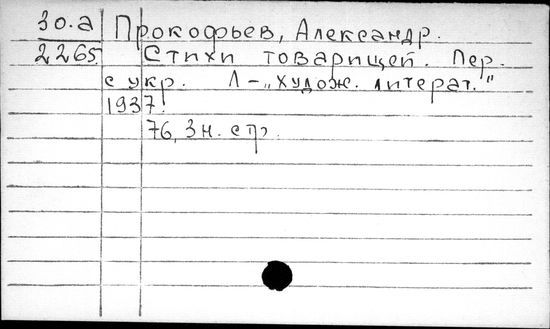 30.a Прокофьев, Александр.
2265 Стихи товарищей. Пер.
с укр. Л-„худож. литерат."
1937.
76, 3 н. стр.